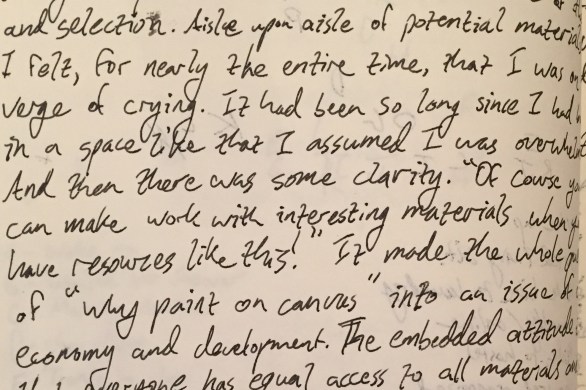 and selection. Aisle upon aisle of potential materials
I felt, for nearly the entire time, that I was on
verge of crying. It had been so long since I had
in a space like that I assumed I was
And then there was some clarity. "Of course
can make work with interesting materials when
have resources like this!" It made the whole
of "why paint on canvas" into an issue of
economy and development. The embedded attitude
everyone has equal access to all materials